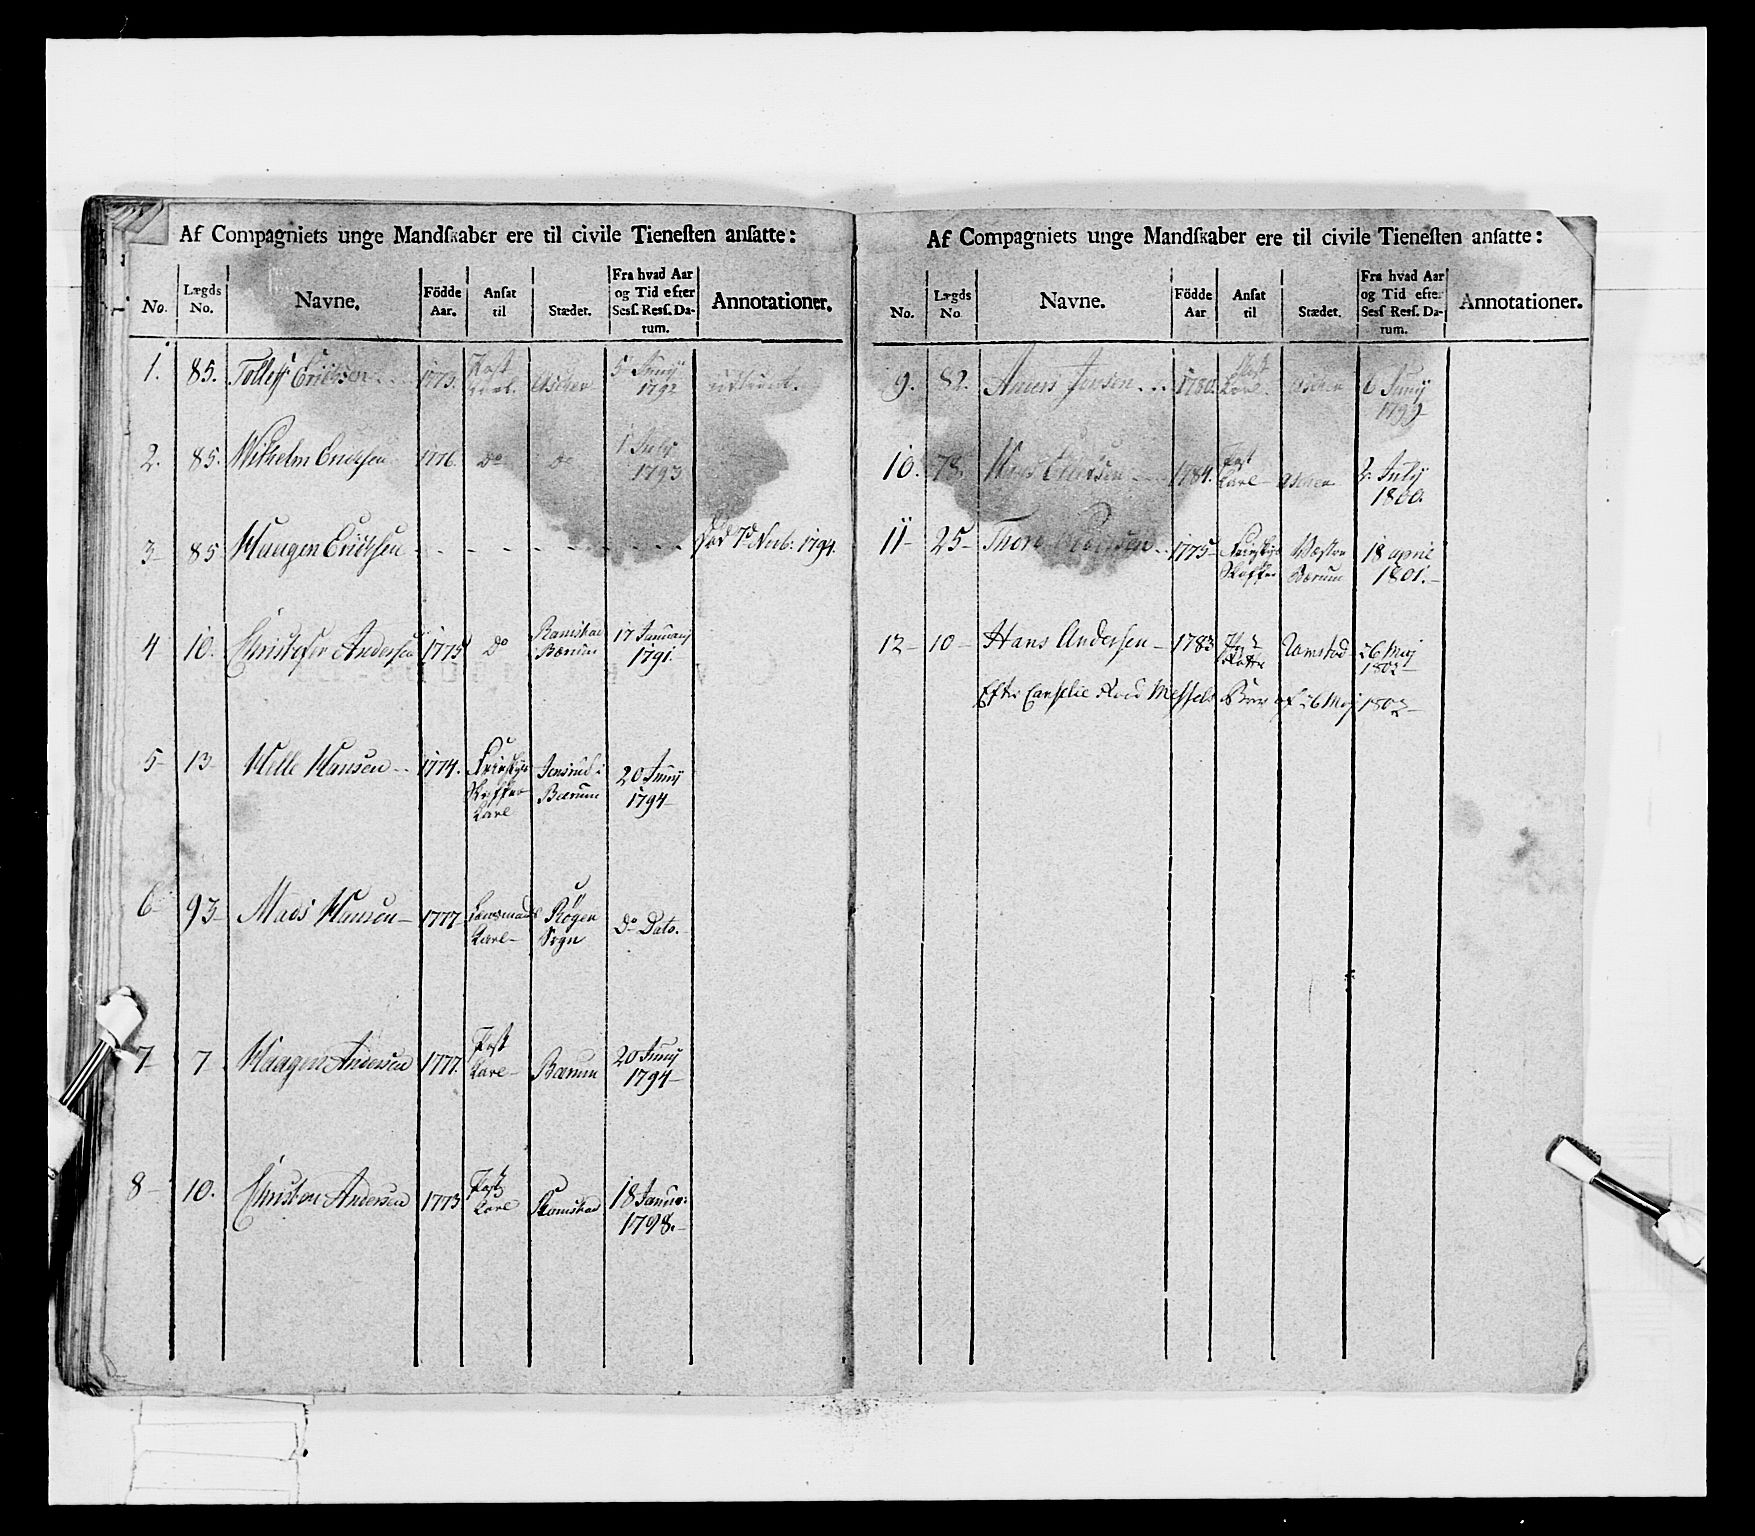 Af Compagniets unge Mandſkaber ere til civile Tieneſten anſatte:
No. Lægds No. Navne. Födde Aar. Anſat til Stædet. Fra hvad Aar og Tid efter Sesſ. Resſ. Datum. Annotationer.
1. 85. Tolleff Erichsen 1773. Post Karl Aschen 5 Junÿ 1792
2. 85. Wilhelm Erichsen 1776. do do 1 Julÿ 1793
3 85 Haagen Erichsen Död 7d Novb: 1794.
4 10. Christofer Andersen 1775 do Ramstad Bærum 17 Januarÿ 1791.
5 13 Helle Hansen 1774. Skaffer Karl Jensrud i Bærum 20 Junÿ 1794
6 93 Mads Hansen 1777 Lænsmands Karl Röÿgen Sogn do Dato.
7 7 Haagen Andersen 1777. Post Karl Bærum 20 Junÿ 1794
8 10. Christen Andersen 1773 Post Karl Ramstad 18 Januar: 1798.
Af Compagniets unge Mandſkaber ere til civile Tieneſten anſatte:
No. Lægds No. Navne. Födde Aar Anſat til Stædet. Fra hvad Aar og Tid efter Sesſ Resſ. Datum. Annotationer.
9. 82. Anders Jensen 1780. Post Karl Aschen 6 Junÿ 1799
10. 78. Erichsen 1784. Post Karl Aschen 2 Julÿ 1800.
11 25 Thore 1775 Skaffer Westre Bærum 18 april 1801.
12 10 Hans Andersen 1783 Post Ramstad 26 Maÿ 1802
Efter Af 26 Maÿ 1802